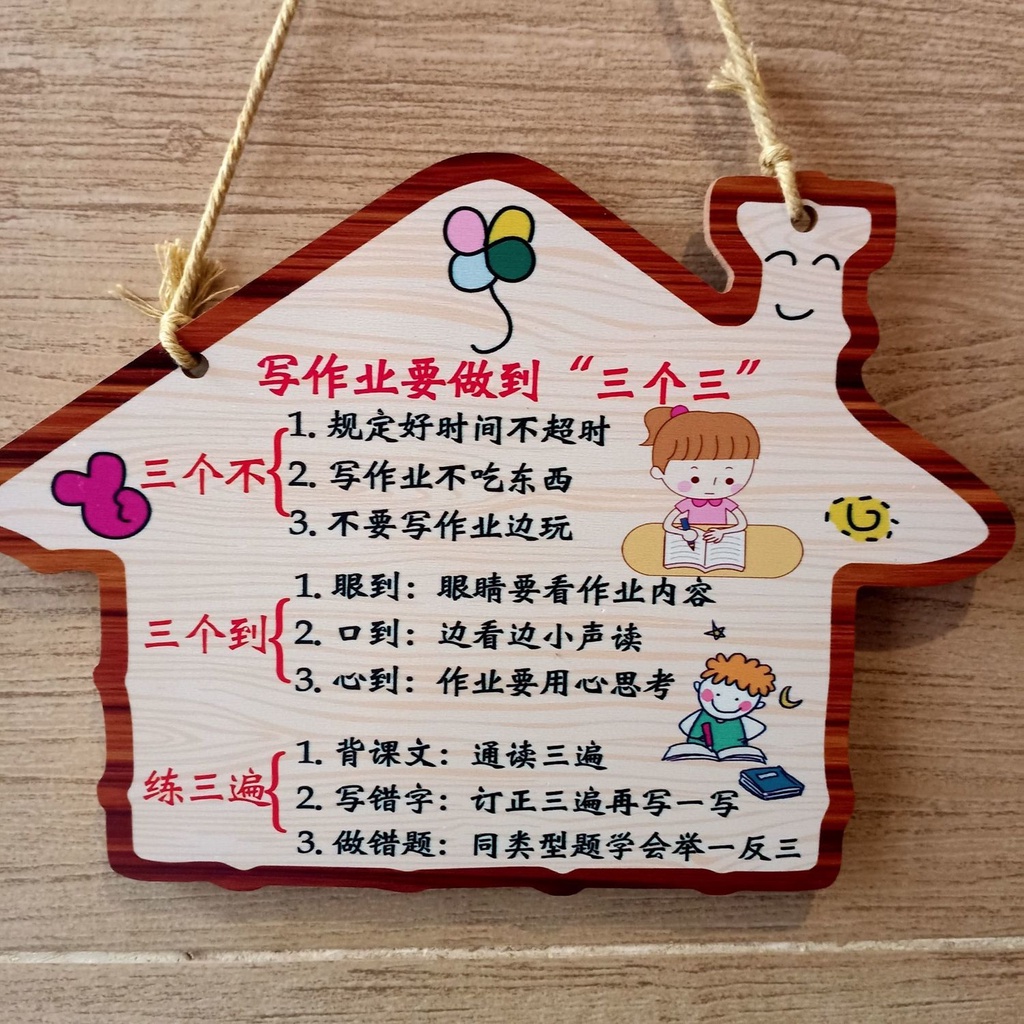 写作业要做到“三个三”
三个不
1. 规定好时间不超时
2. 写作业不吃东西
3. 不要写作业边玩
三个到
1. 眼到：眼睛要看作业内容
2. 口到：边看边小声读
3. 心到：作业要用心思考
练三遍
1. 背课文：通读三遍
2. 写错字：订正三遍再写一写
3. 做错题：同类型题学会举一反三